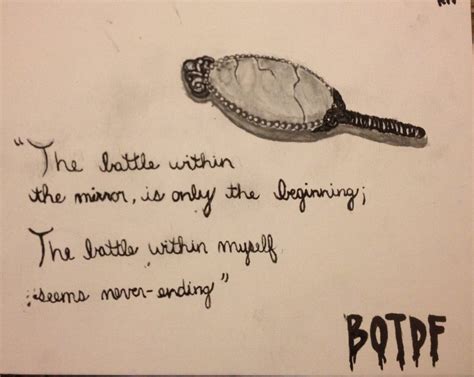 "The battle within
the mirror, is only the beginning;
The battle within myself
seems never-ending"
BOTDF